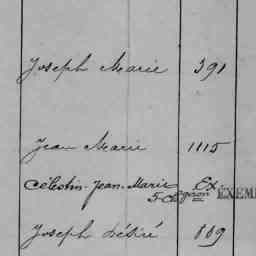 Joseph Marie 391
Jean Marie 1115
Célestin-Jean-Marie Ex EXEM
Joseph Désiré 889